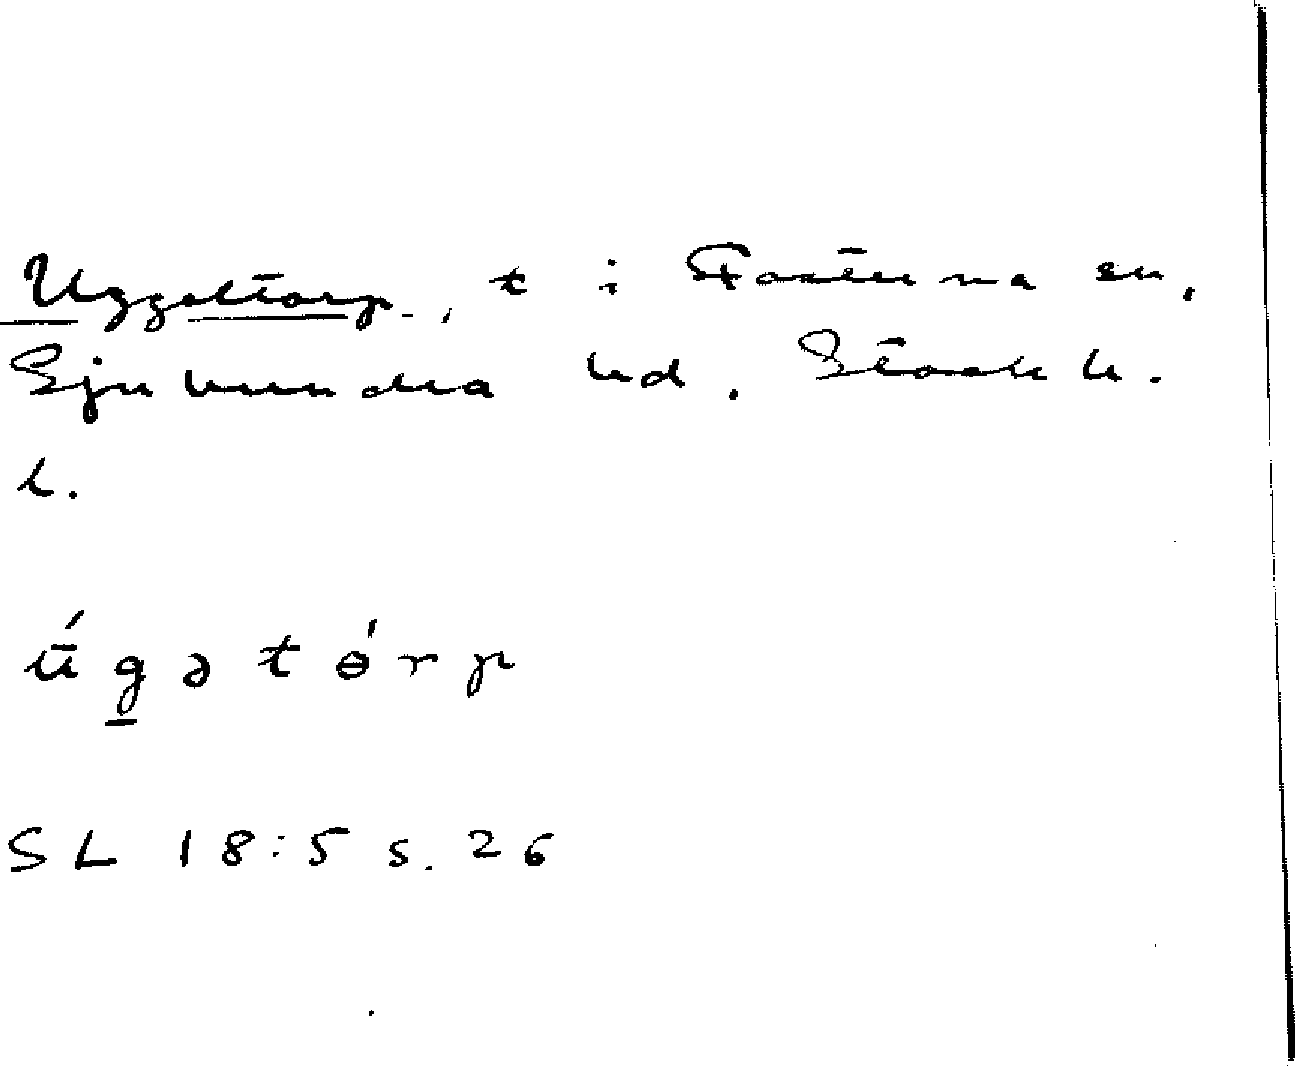 Uggeltorp, t i Fasterna sn,
Sjuhundra hd. Stockh.
l.
ú g ə t ɵ́ r p
SL 18:5 s. 26